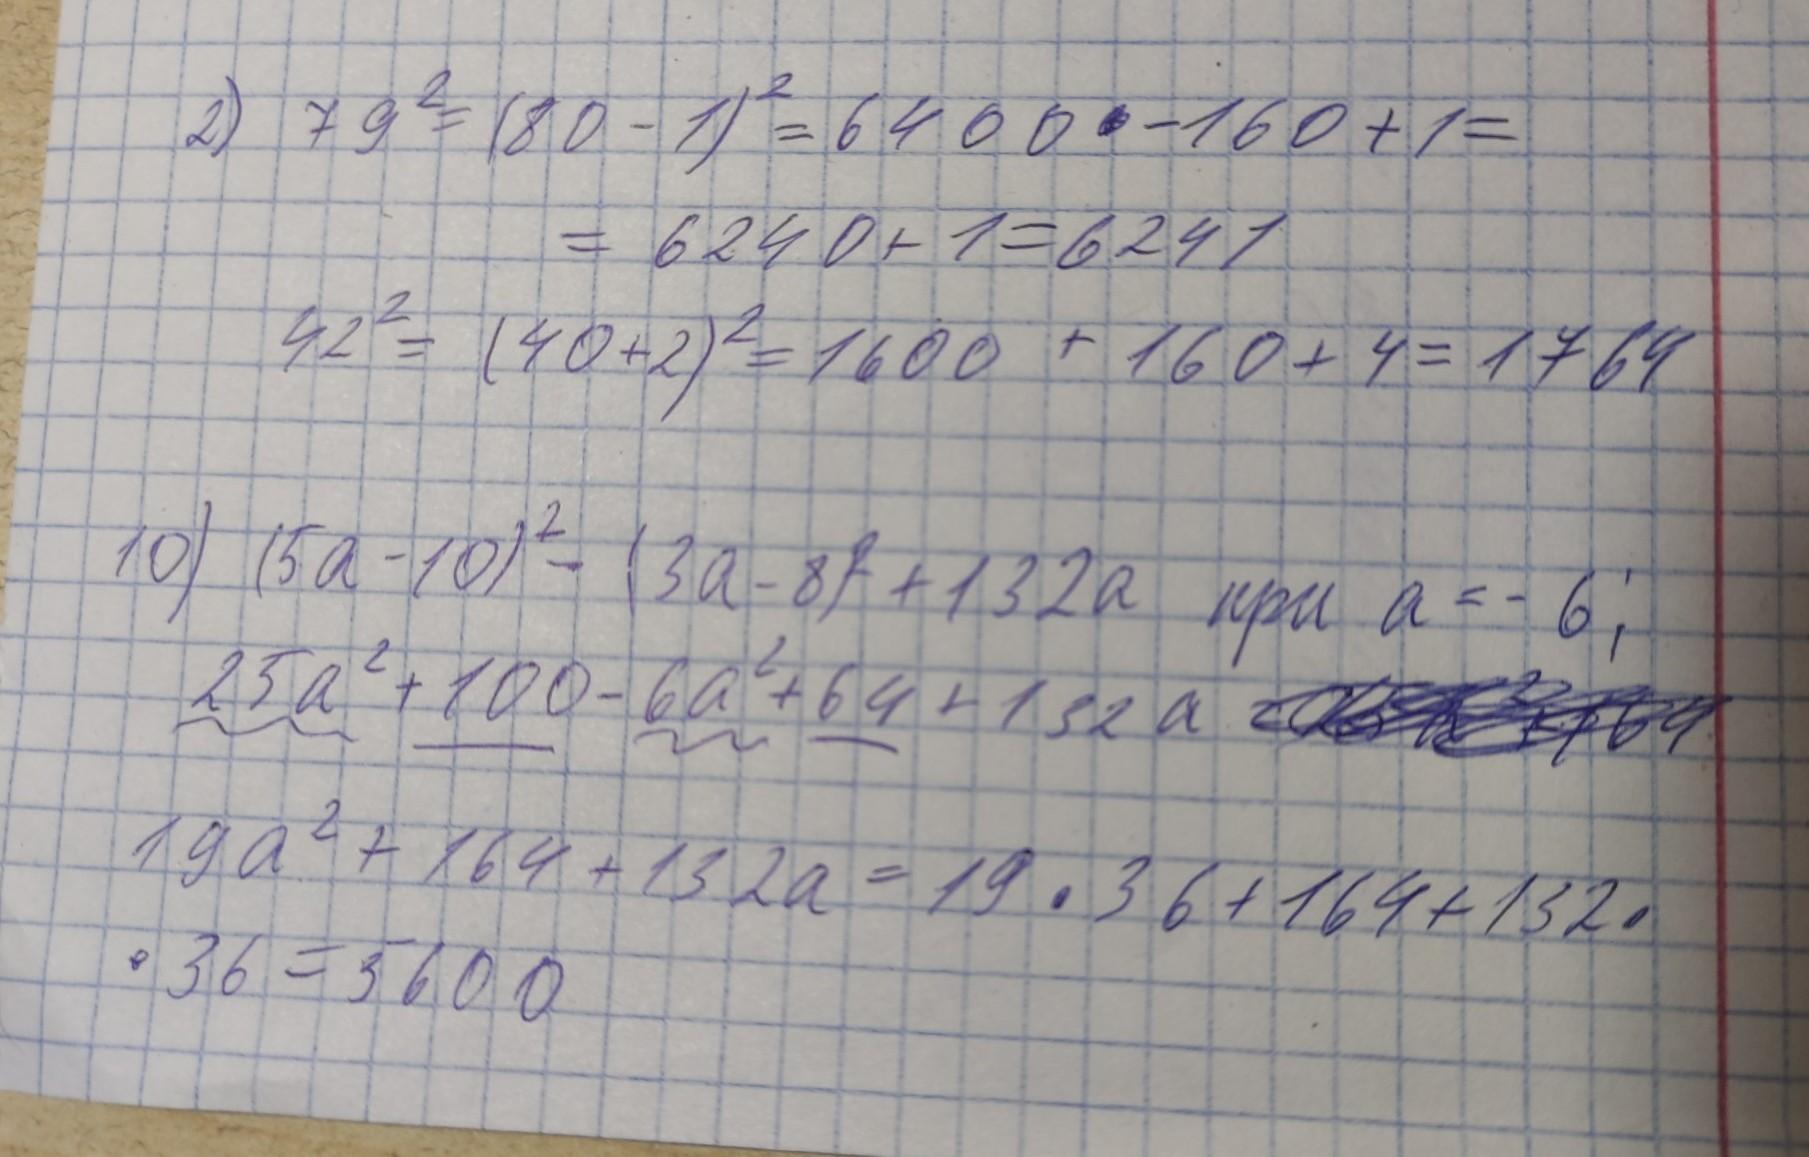 2) 79² = (80 - 1)² = 6400 - 160 + 1 =
= 6240 + 1 = 6241
42² = (40 + 2)² = 1600 + 160 + 4 = 1764
10) (5a - 10)² - (3a - 8)² + 132a при a = - 6;
25a² + 100 - 6a² + 64 + 132a
19a² + 164 + 132a = 19 · 36 + 164 + 132 ·
· 36 = 5600